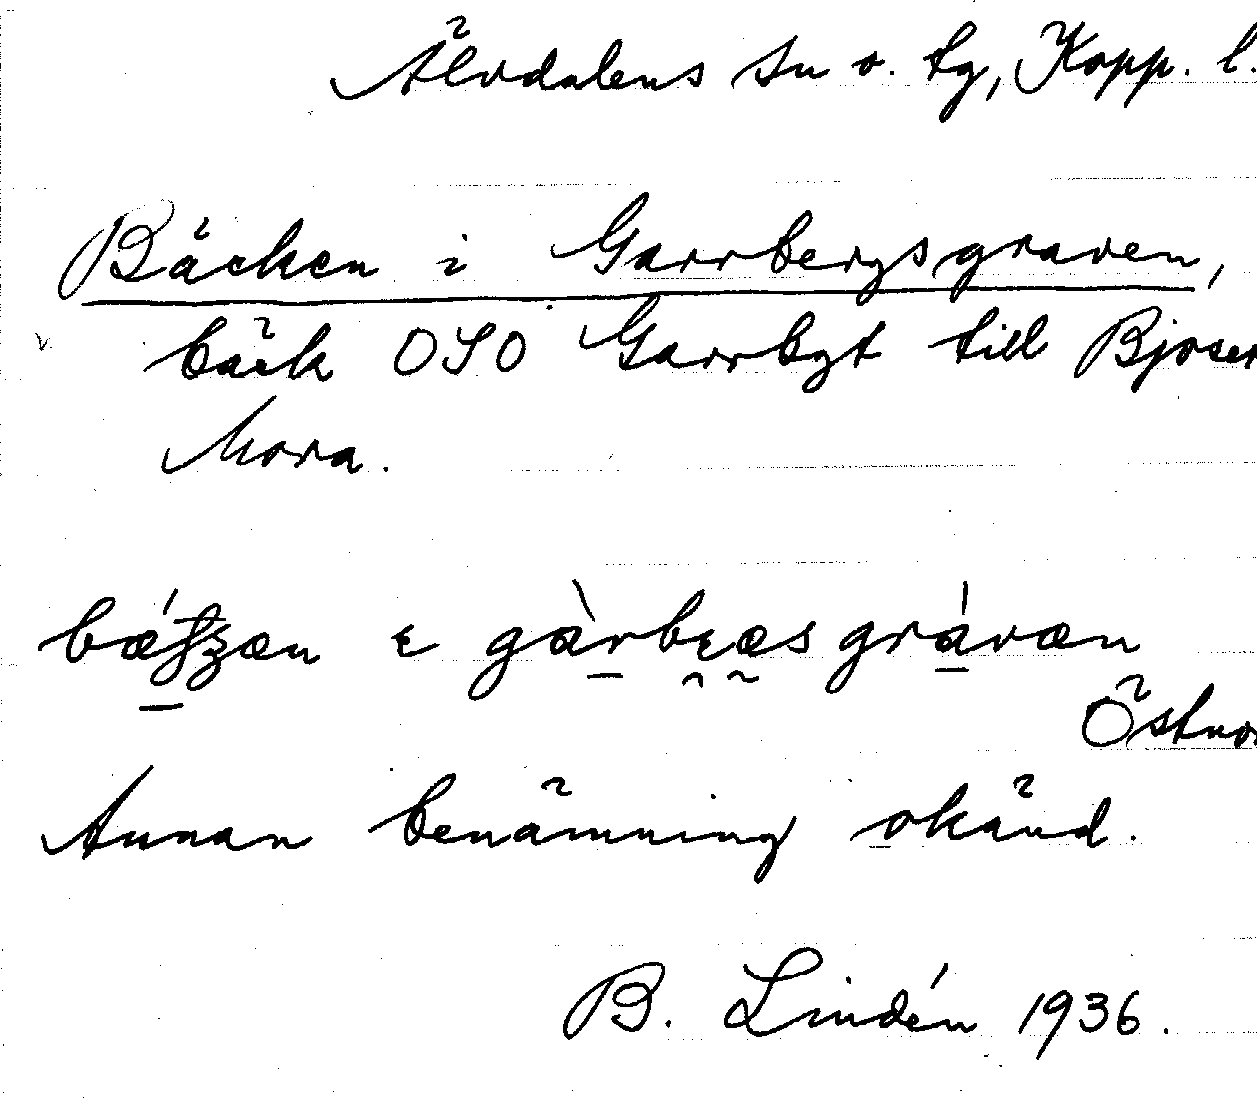 Älvdalens sn o. tg, Kopp. l.
Bäcken i Garrbergsgraven,
bäck OSO Garrbgt till Bjoser
Mora.
gràvæn
Östnor
Annan benämning okänd.
B. Lindén 1936.